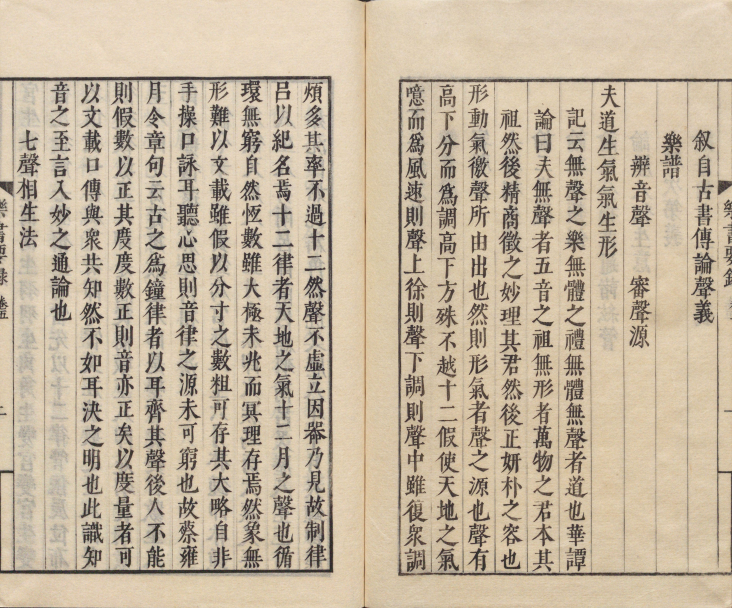 叙自古書傳論聲義
樂譜
辨音聲　審聲源
夫道生氣氣生形
記云無聲之樂無體之禮無體無聲者道也華譚
論曰夫無聲者五音之祖無形者萬物之君本其
祖然後精商徵之妙理其君然後正妍朴之容也
形動氣徵聲所由出也然則形氣者聲之源也聲有
高下分而爲調高下方殊不越十二假使天地之氣
噫而爲風速則聲上徐則聲下調則聲中雖復衆調
煩多其率不過十二然聲不虛立因器乃見故制律
呂以紀名焉十二律者天地之氣十二月之聲也循
環無窮自然恆數雖大極未兆而冥理存焉然象無
形難以文載雖假以分寸之數粗可存其大略自非
手操口詠耳聽心思則音律之源未可窮也故蔡雍
月令章句云古之爲鐘律者以耳齊其聲後人不能
則假數以正其度度數正則音亦正矣以度量者可
以文載口傳與衆共知然不如耳決之明也此識知
音之至言入妙之通論也
七聲相生法